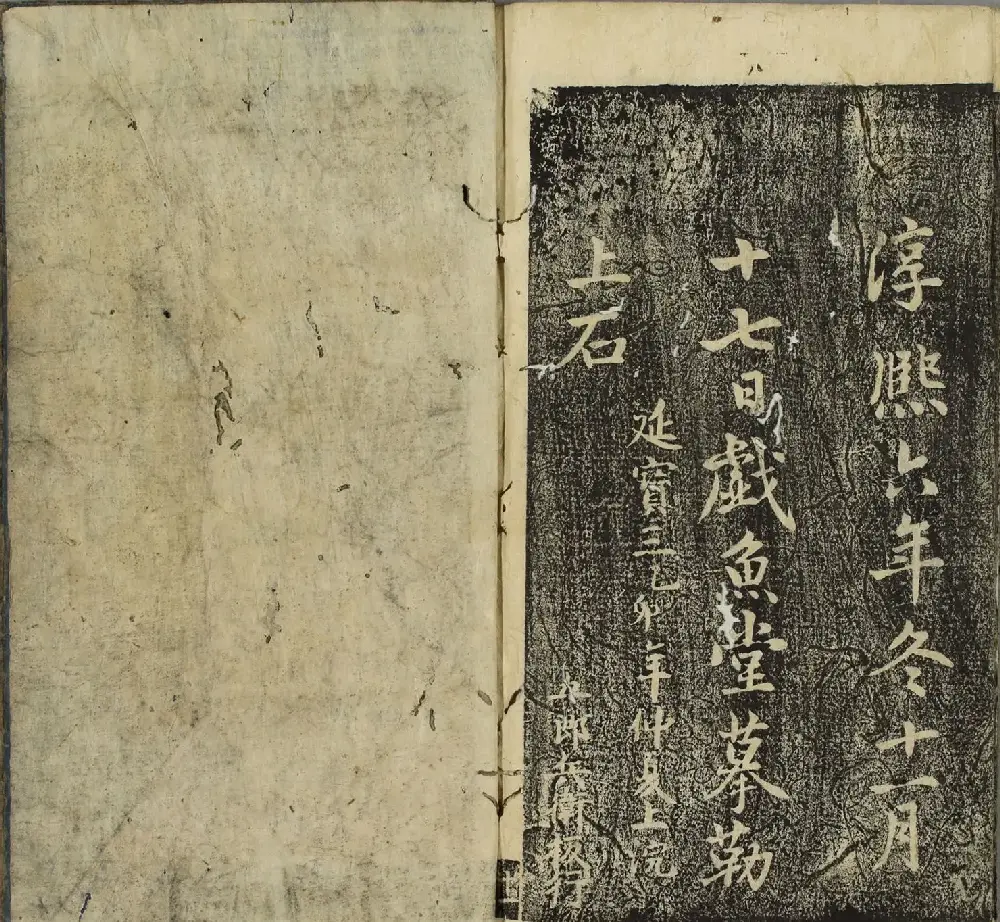 淳熙六年冬十一月
十七日戯魚堂摹勒
上石
延寶三乙卯年仲夏上浣
郎兵衛